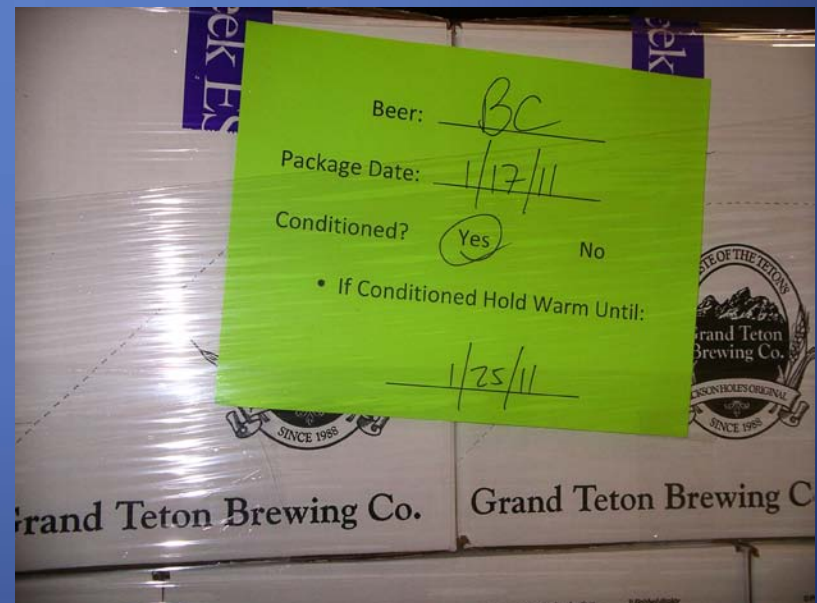 eek ES
eek
Beer: BC
Package Date: 1/17/11
Conditioned? Yes No
• If Conditioned Hold Warm Until:
1/25/11
TE OF THE TETONS
rand Teton
Brewing Co.
JACKSON HOLE'S ORIGINAL
SINCE 1988
SINCE 1988
rand Teton Brewing Co.
Grand Teton Brewing C